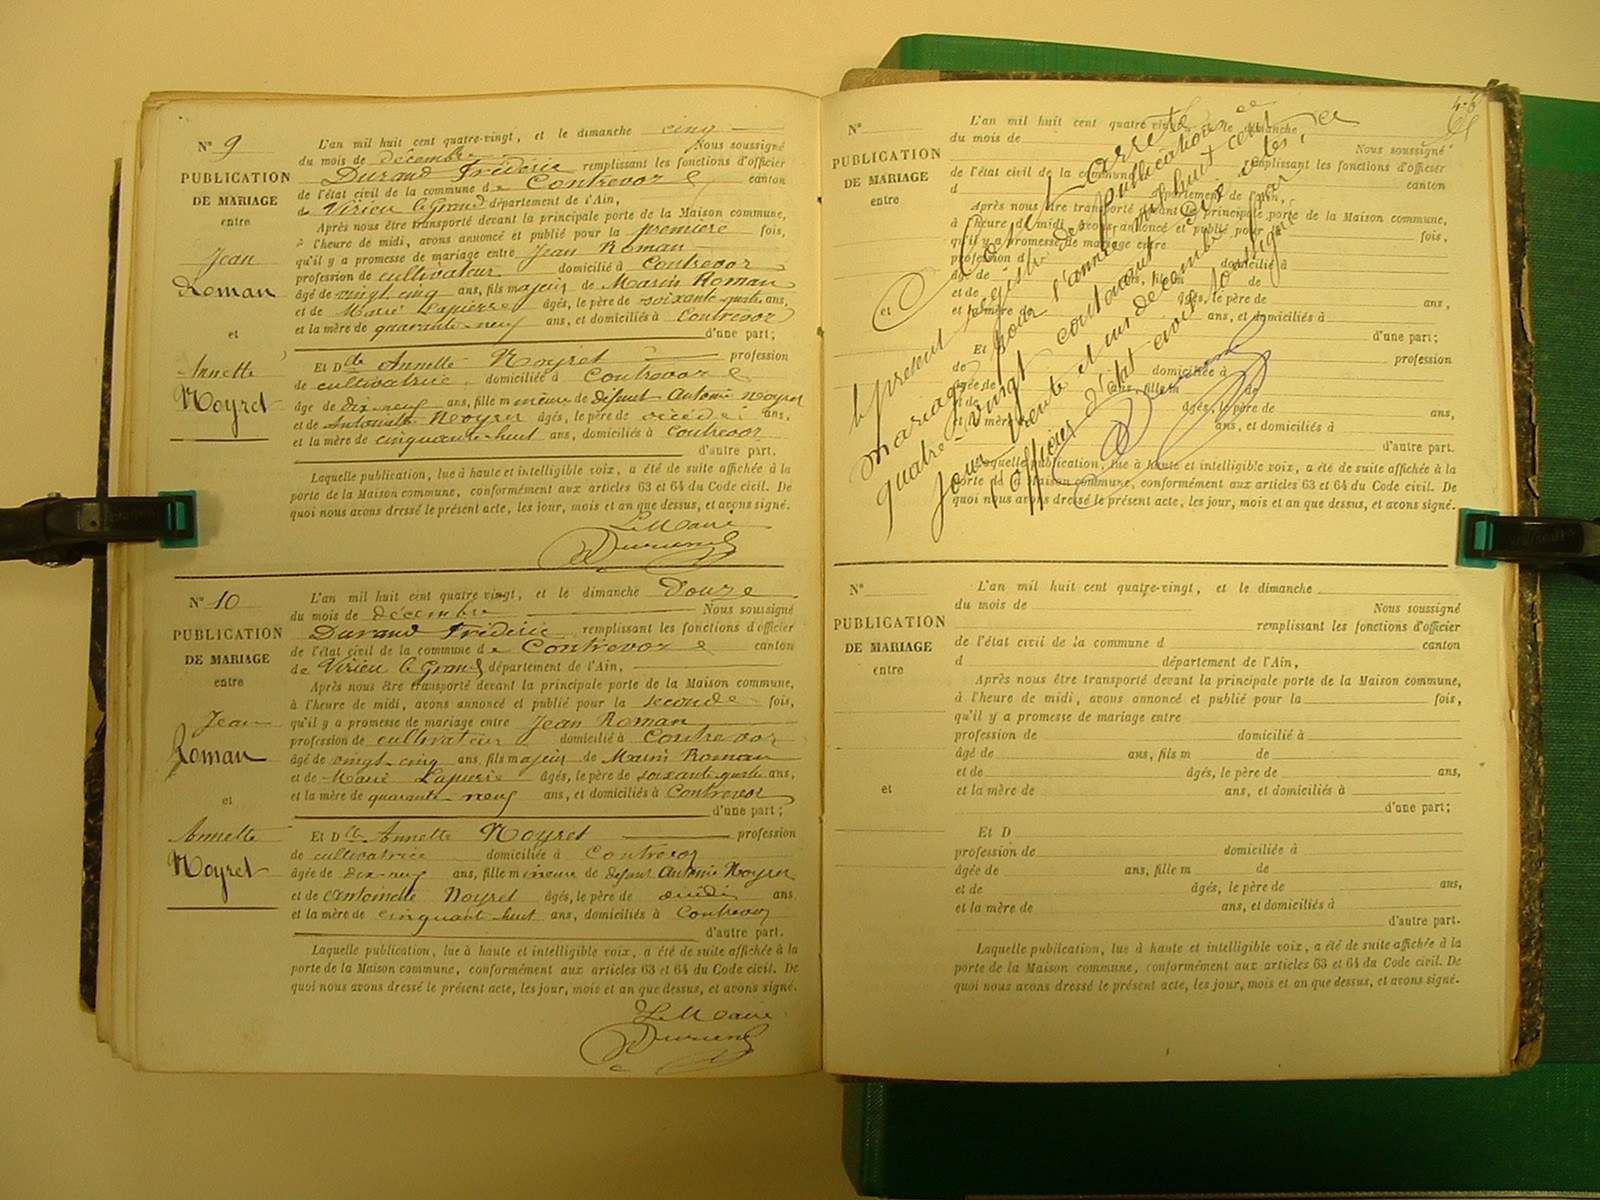 N° 9
PUBLICATION
DE MARIAGE
entre
Jean
Roman
et
Annette
Noyret
L'an mil huit cent quatre-vingt, et le dimanche cinq
du mois de décembre Nous soussigné
Durand Frédéric remplissant les fonctions d'officier
de l'état civil de la commune de Contrevoz canton
de Virieu le Grand département de l'Ain,
Après nous être transporté devant la principale porte de la Maison commune,
à l'heure de midi, avons annoncé et publié pour la première fois,
qu'il y a promesse de mariage entre Jean Roman
profession de cultivateur domicilié à Contrevoz
âgé de vingt cinq ans, fils majeur de Marin Roman
et de Marie Lapierre âgés, le père de soixante-quatre ans,
et la mère de quarante-neuf ans, et domiciliés à Contrevoz
d'une part;
Et Dlle Annette Noyret profession
de cultivatrice domiciliée à Contrevoz
âgée de dix-neuf ans, fille mineure de défunt Antoine Noyret
et de Antoinette Noyret âgés, le père de décédé ans,
et la mère de cinquante-huit ans, domiciliés à Contrevoz
d'autre part.
Laquelle publication, lue à haute et intelligible voix, a été de suite affichée à la
porte de la Maison commune, conformément aux articles 63 et 64 du Code civil. De
quoi nous avons dressé le présent acte, les jour, mois et an que dessus, et avons signé.
Le Maire
Durand
N° 10
PUBLICATION
DE MARIAGE
entre
Jean
Roman
et
Annette
Noyret
L'an mil huit cent quatre-vingt, et le dimanche Douze
du mois de décembre Nous soussigné
Durand Frédéric remplissant les fonctions d'officier
de l'état civil de la commune de Contrevoz canton
de Virieu le Grand département de l'Ain,
Après nous être transporté devant la principale porte de la Maison commune,
à l'heure de midi, avons annoncé et publié pour la seconde fois,
qu'il y a promesse de mariage entre Jean Roman
profession de cultivateur domicilié à Contrevoz
âgé de vingt-cinq ans, fils majeur de Marin Roman
et de Marie Lapierre âgés, le père de soixante-quatre ans,
et la mère de quarante-neuf ans, et domiciliés à Contrevoz
d'une part;
Et Dlle Annette Noyret profession
de cultivatrice domiciliée à Contrevoz
âgée de dix-neuf ans, fille mineure de défunt Antoine Noyret
et de Antoinette Noyret âgés, le père de décédé ans
et la mère de cinquant-huit ans, domiciliés à Contrevoz
d'autre part.
Laquelle publication, lue à haute et intelligible voix, a été de suite affichée à la
porte de la Maison commune, conformément aux articles 63 et 64 du Code civil. De
quoi nous avons dressé le présent acte, les jour, mois et an que dessus, et avons signé.
Le Maire
Durand
N°
PUBLICATION
DE MARIAGE
entre
et
L'an mil huit cent quatre-vingt, et le dimanche
du mois de Nous soussigné
remplissant les fonctions d'officier
de l'état civil de la commune d canton
d département de l'Ain,
Après nous être transporté devant la principale porte de la Maison commune,
à l'heure de midi, avons annoncé et publié pour la fois,
qu'il y a promesse de mariage entre
profession de domicilié à
âgé de ans, fils m de
et de âgés, le père de ans,
et la mère de ans, et domiciliés à
d'une part;
Et D profession
de domiciliée à
âgée de ans, fille m de
et de âgés, le père de ans,
et la mère de ans, et domiciliés à
d'autre part.
Laquelle publication, lue à haute et intelligible voix, a été de suite affichée à la
porte de la Maison commune, conformément aux articles 63 et 64 du Code civil. De
quoi nous avons dressé le présent acte, les jour, mois et an que dessus, et avons signé.
Clos et Arrêté
le présent registre des publications de
mariage pour l'année mil huit cent
quatre-vingt contenant dix actes, ce
jour trente et un décembre par
l'officier d'état civil soussigné
N°
PUBLICATION
DE MARIAGE
entre
et
L'an mil huit cent quatre-vingt, et le dimanche
du mois de Nous soussigné
remplissant les fonctions d'officier
de l'état civil de la commune d canton
d département de l'Ain,
Après nous être transporté devant la principale porte de la Maison commune,
à l'heure de midi, avons annoncé et publié pour la fois,
qu'il y a promesse de mariage entre
profession de domicilié à
âgé de ans, fils m de
et de âgés, le père de ans,
et la mère de ans, et domiciliés à
d'une part;
Et D
profession de domiciliée à
âgée de ans, fille m de
et de âgés, le père de ans,
et la mère de ans, et domiciliés à
d'autre part.
Laquelle publication, lue à haute et intelligible voix, a été de suite affichée à la
porte de la Maison commune, conformément aux articles 63 et 64 du Code civil. De
quoi nous avons dressé le présent acte, les jour, mois et an que dessus, et avons signé.